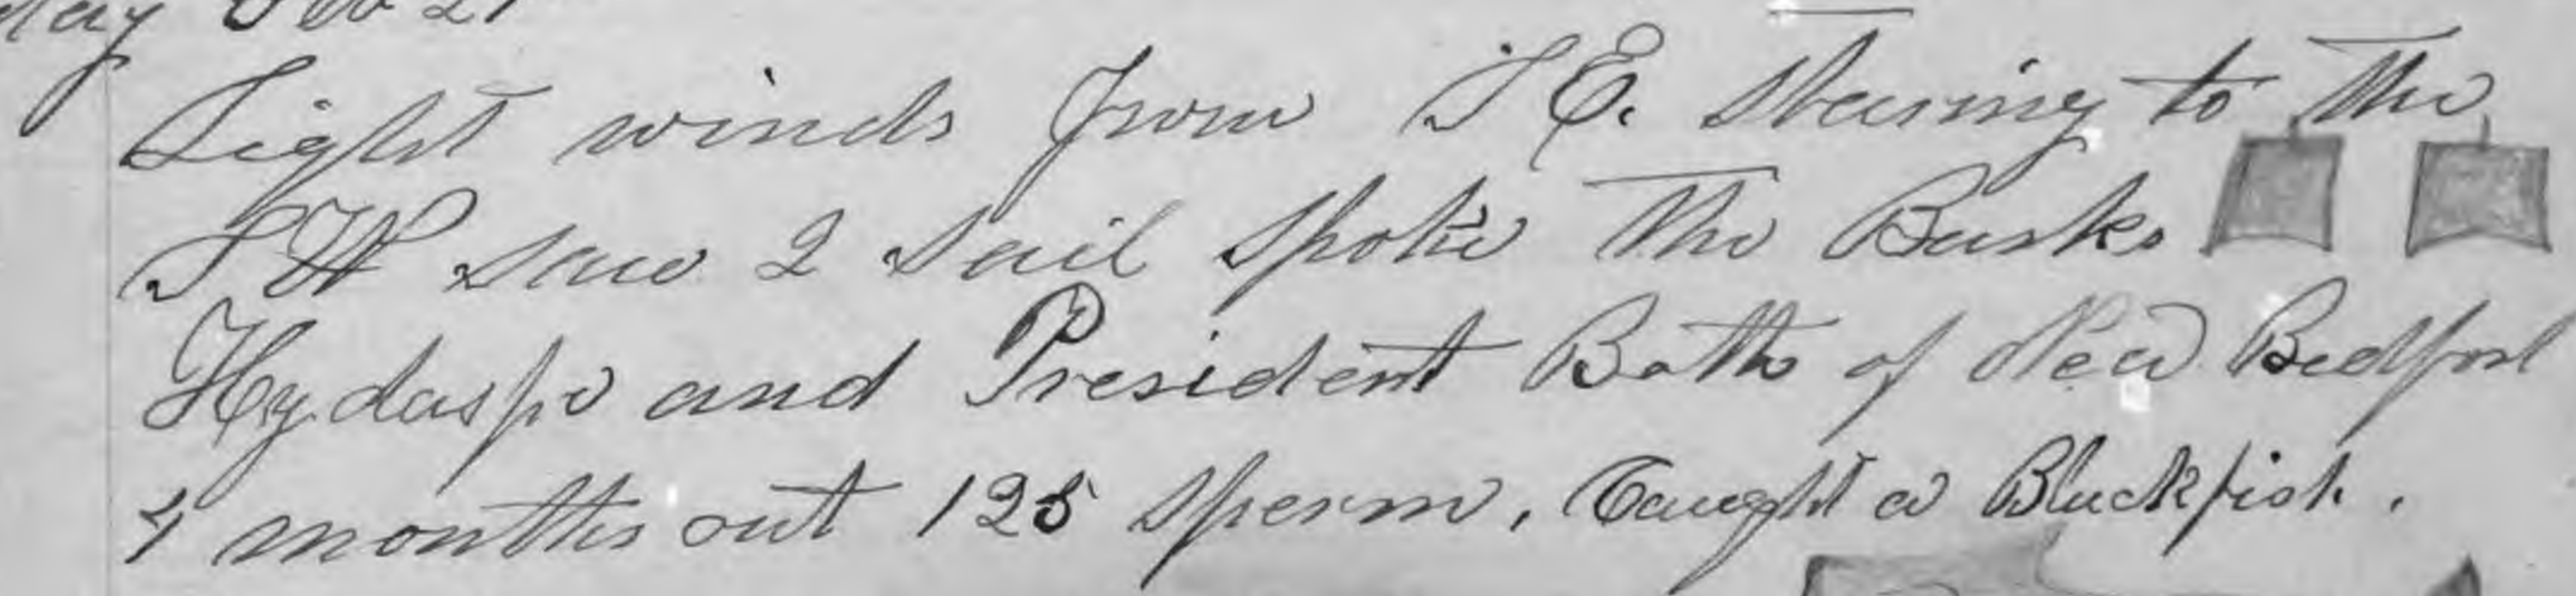 Light winds from S E. stearing to the
S W saw 2 sail spoke the Barks
Hydaspe and President Both of New Bedford
4 months out 125 sperm, Caught a Blackfish.